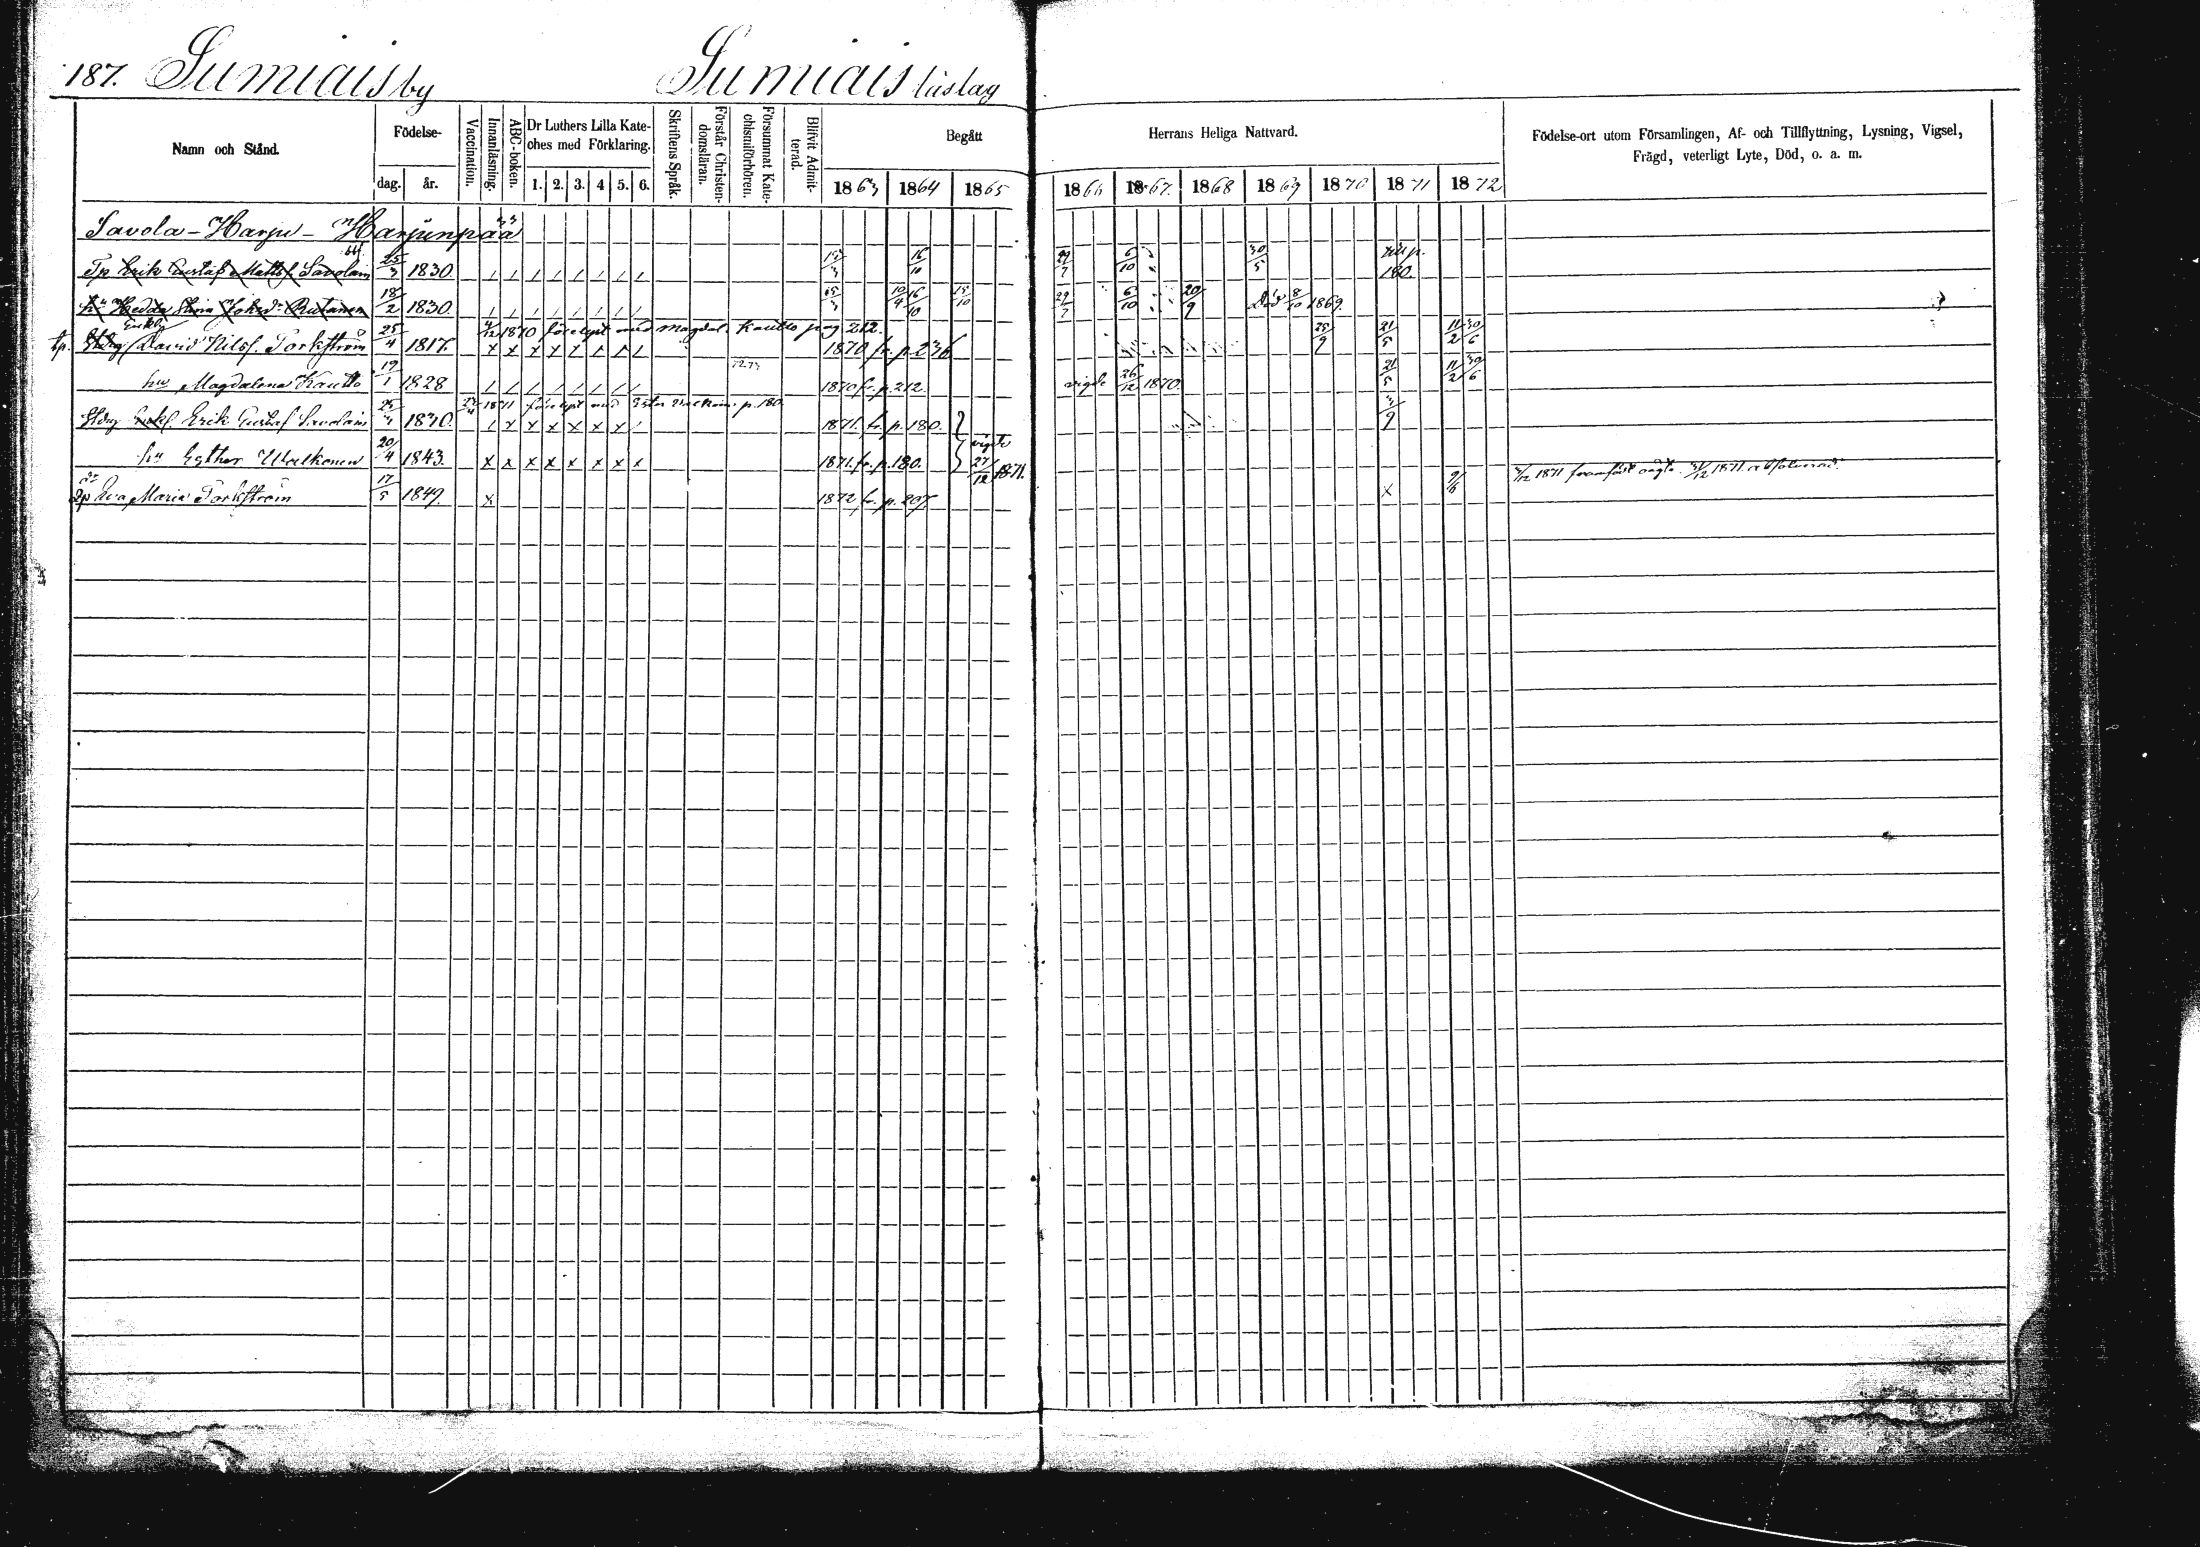 187. Sumiais by Sumiais lüslag
Namn och Stånd.
Födelse-
dag. år.
Vaccination.
Innanläsning.
ABC-boken.
Dr Luthers Lilla Kate-
ches med Förklaring.
1. 2. 3. 4 5. 6.
Skriftens Språk.
Förstår Christen-
domsläran.
Försummat Kate-
chismiförhören.
Blifvit Admit-
terad.
Begått
1863 1864 1865
Herrans Heliga Nattvard.
1866 1867. 1868 1869 1870 1871 1872
Födelse-ort utom Församlingen, Af- och Tillflyttning, Lysning, Vigsel,
Frägd, veterligt Lyte, Död, o. a. m.
Savola-Harju-Harjunpää
Tp Erik Gustaf Mattsf. Savolain 25/3 1830. 16/10 29/7 6/10 30/5 till p. 180.
hu Hedda Stina Johsdr Rutanen 18/2 1830. 10/4 16/10 15/10 29/7 6/10 20/9 Död 8/10 1869.
Enkl.
tp. David Nilsf. Torkström 25/4 1817. 4/12 1870 förelyst med Magdal. Kautto pag 212. 1870 fr. p. 236 25/9 21/5 11/2 30/6
hu Magdalena Kautto 19/1 1828 1870 fr. p. 212. vigde 26/12 1870. 21/5 11/2 30/6
Enkl. Erik Gustaf Savolain 25/3 1830. 1871 förelyst med p. 180 1871. fr. p. 180.
hu Esther Walkonen 20/4 1843. 1871. fr. p. 180. vigde 27/12 1871.
Eva Maria Torkström 17/5 1849. 1872 fr. p. 207. 9/6 1871